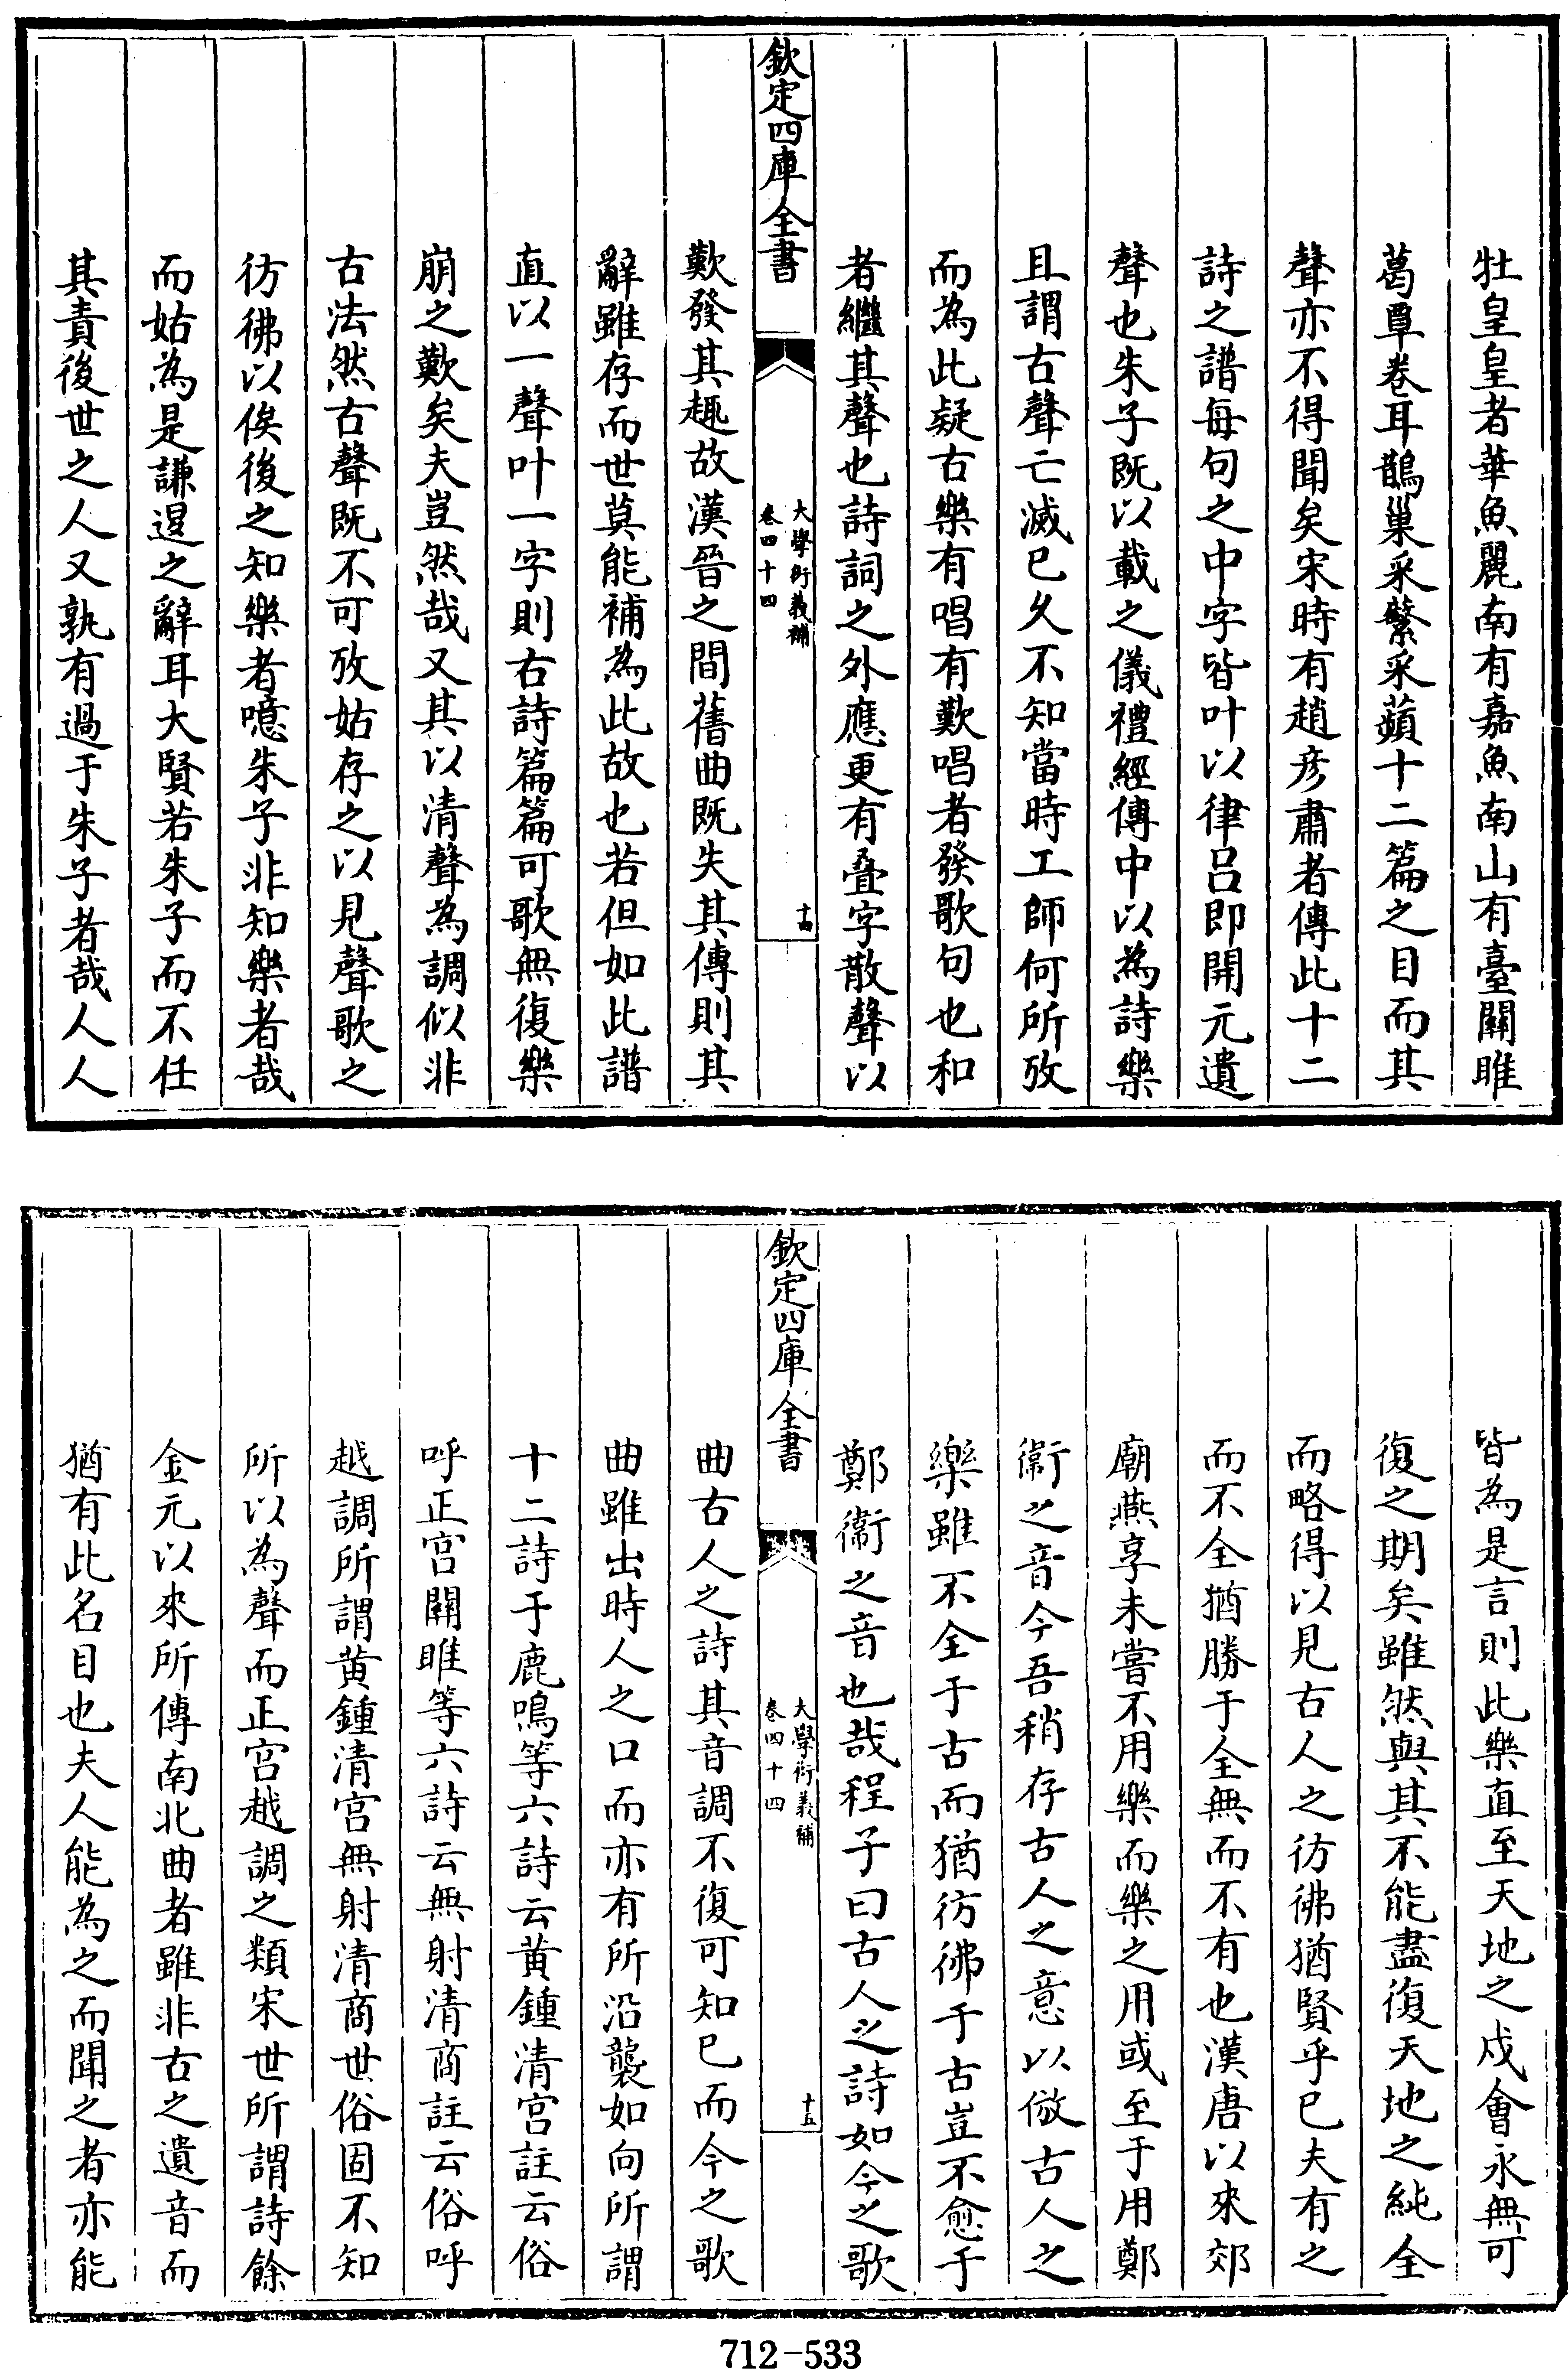 牡皇皇者華魚麗南有嘉魚南山有臺關雎
葛覃卷耳鵲巢采蘩采蘋十二篇之目而其
聲亦不得聞矣宋時有趙彥肅者傳此十二
詩之譜每句之中字皆叶以律呂即開元遺
聲也朱子既以載之儀禮經傳中以為詩樂
且謂古聲亡滅已久不知當時工師何所攷
而為此疑古樂有唱有歎唱者發歌句也和
者繼其聲也詩詞之外應更有疊字散聲以
欽定四庫全書
大學衍義補
卷四十四
十四
歎發其趣故漢晉之間舊曲既失其傳則其
辭雖存而世莫能補為此故也若但如此譜
直以一聲叶一字則右詩篇篇可歌無復樂
崩之歎矣夫豈然哉又其以清聲為調似非
古法然古聲既不可攷姑存之以見聲歌之
彷彿以俟後之知樂者噫朱子非知樂者哉
而姑為是謙退之辭耳大賢若朱子而不任
其責後世之人又孰有過于朱子者哉人人
皆為是言則此樂直至天地之戍會永無可
復之期矣雖然與其不能盡復天地之純全
而略得以見古人之彷彿猶賢乎已夫有之
而不全猶勝于全無而不有也漢唐以來郊
廟燕享未嘗不用樂而樂之用或至于用鄭
衞之音今吾稍存古人之意以倣古人之
樂雖不全于古而猶彷彿于古豈不愈于
鄭衞之音也哉程子曰古人之詩如今之歌
欽定四庫全書
大學衍義補
卷四十四
十五
曲古人之詩其音調不復可知已而今之歌
曲雖出時人之口而亦有所沿襲如向所謂
十二詩于鹿鳴等六詩云黃鍾清宮註云俗
呼正宮關雎等六詩云無射清商註云俗呼
越調所謂黃鍾清宮無射清商世俗固不知
所以為聲而正宮越調之類宋世所謂詩餘
金元以來所傳南北曲者雖非古之遺音而
猶有此名目也夫人能為之而聞之者亦能
712-533